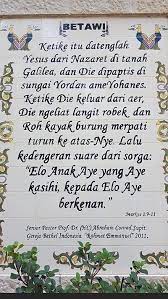 BETAWI
Ketike itu datenglah
Yesus dari Nazaret di tanah
Galilea, dan Die dipaptis di
sungai Yordan ame Yohanes.
Ketike Die keluar dari aer,
Die ngeliat langit robek, dan
Roh kayak burung merpati
turun ke atas-Nye. Lalu
kedengeran suare dari sorga:
"Elo Anak Aye yang Aye
kasihi, kepada Elo Aye
berkenan."
Markus 1:9-11
Senior Pastor Prof. Dr. (HC) Abraham Conrad Supit
Gereja Bethel Indonesia "Rahmat Emmanuel" 2011